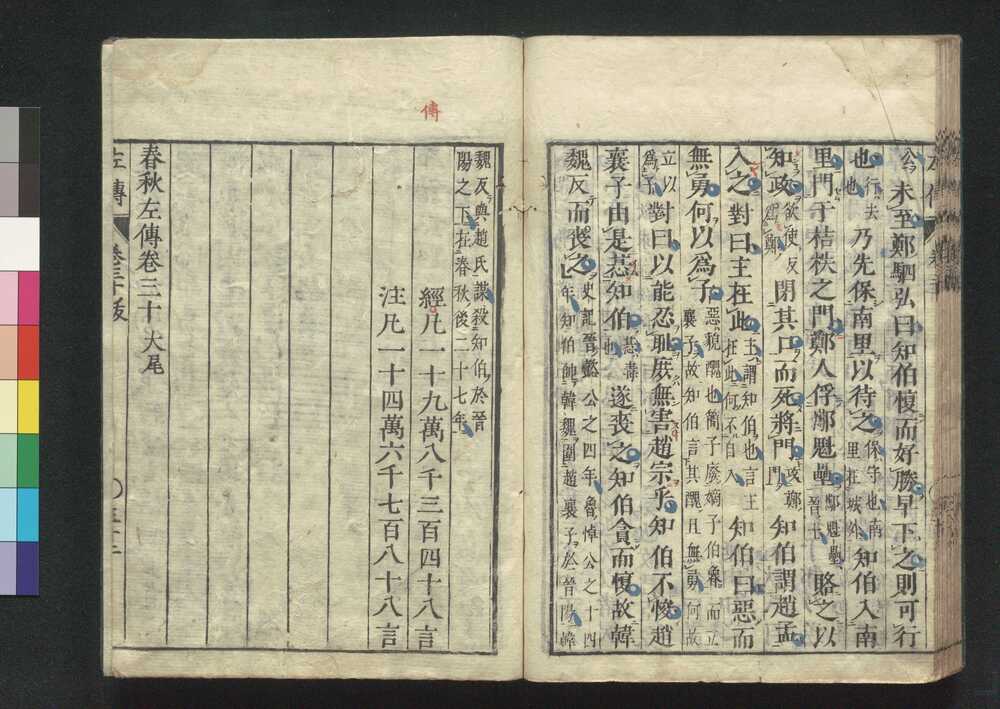 公未至鄭駟弘曰知伯愎而好勝早下之則可行
也行去也乃先保南里以待之保守也南里在城外知伯入南
里門于桔柣之門鄭人俘酅魁壘酅魁壘晉士賂之以
知政欲使反爲鄭閉其口而死將門攻鄭門知伯謂趙孟
入之對曰主在此主謂知伯也言主在此何不自入知伯曰惡而
無勇何以爲子惡貌醜也簡子廢嫡子伯魯而立襄子故知伯言其醜且無勇何故
立以爲子對曰以能忍耻庶無害趙宗乎知伯不悛趙
襄子由是惎知伯惎毒也遂喪之知伯貪而愎故韓
魏反而喪之史記晉懿公之四年魯悼公之十四年知伯帥韓魏圍趙襄子於晉陽韓
傳
魏反與趙氏謀殺知伯於晉陽之下在春秋後二十七年
經凡一十九萬八千三百四十八言
注凡一十四萬六千七百八十八言
春秋左傳卷三十 大尾
左傳